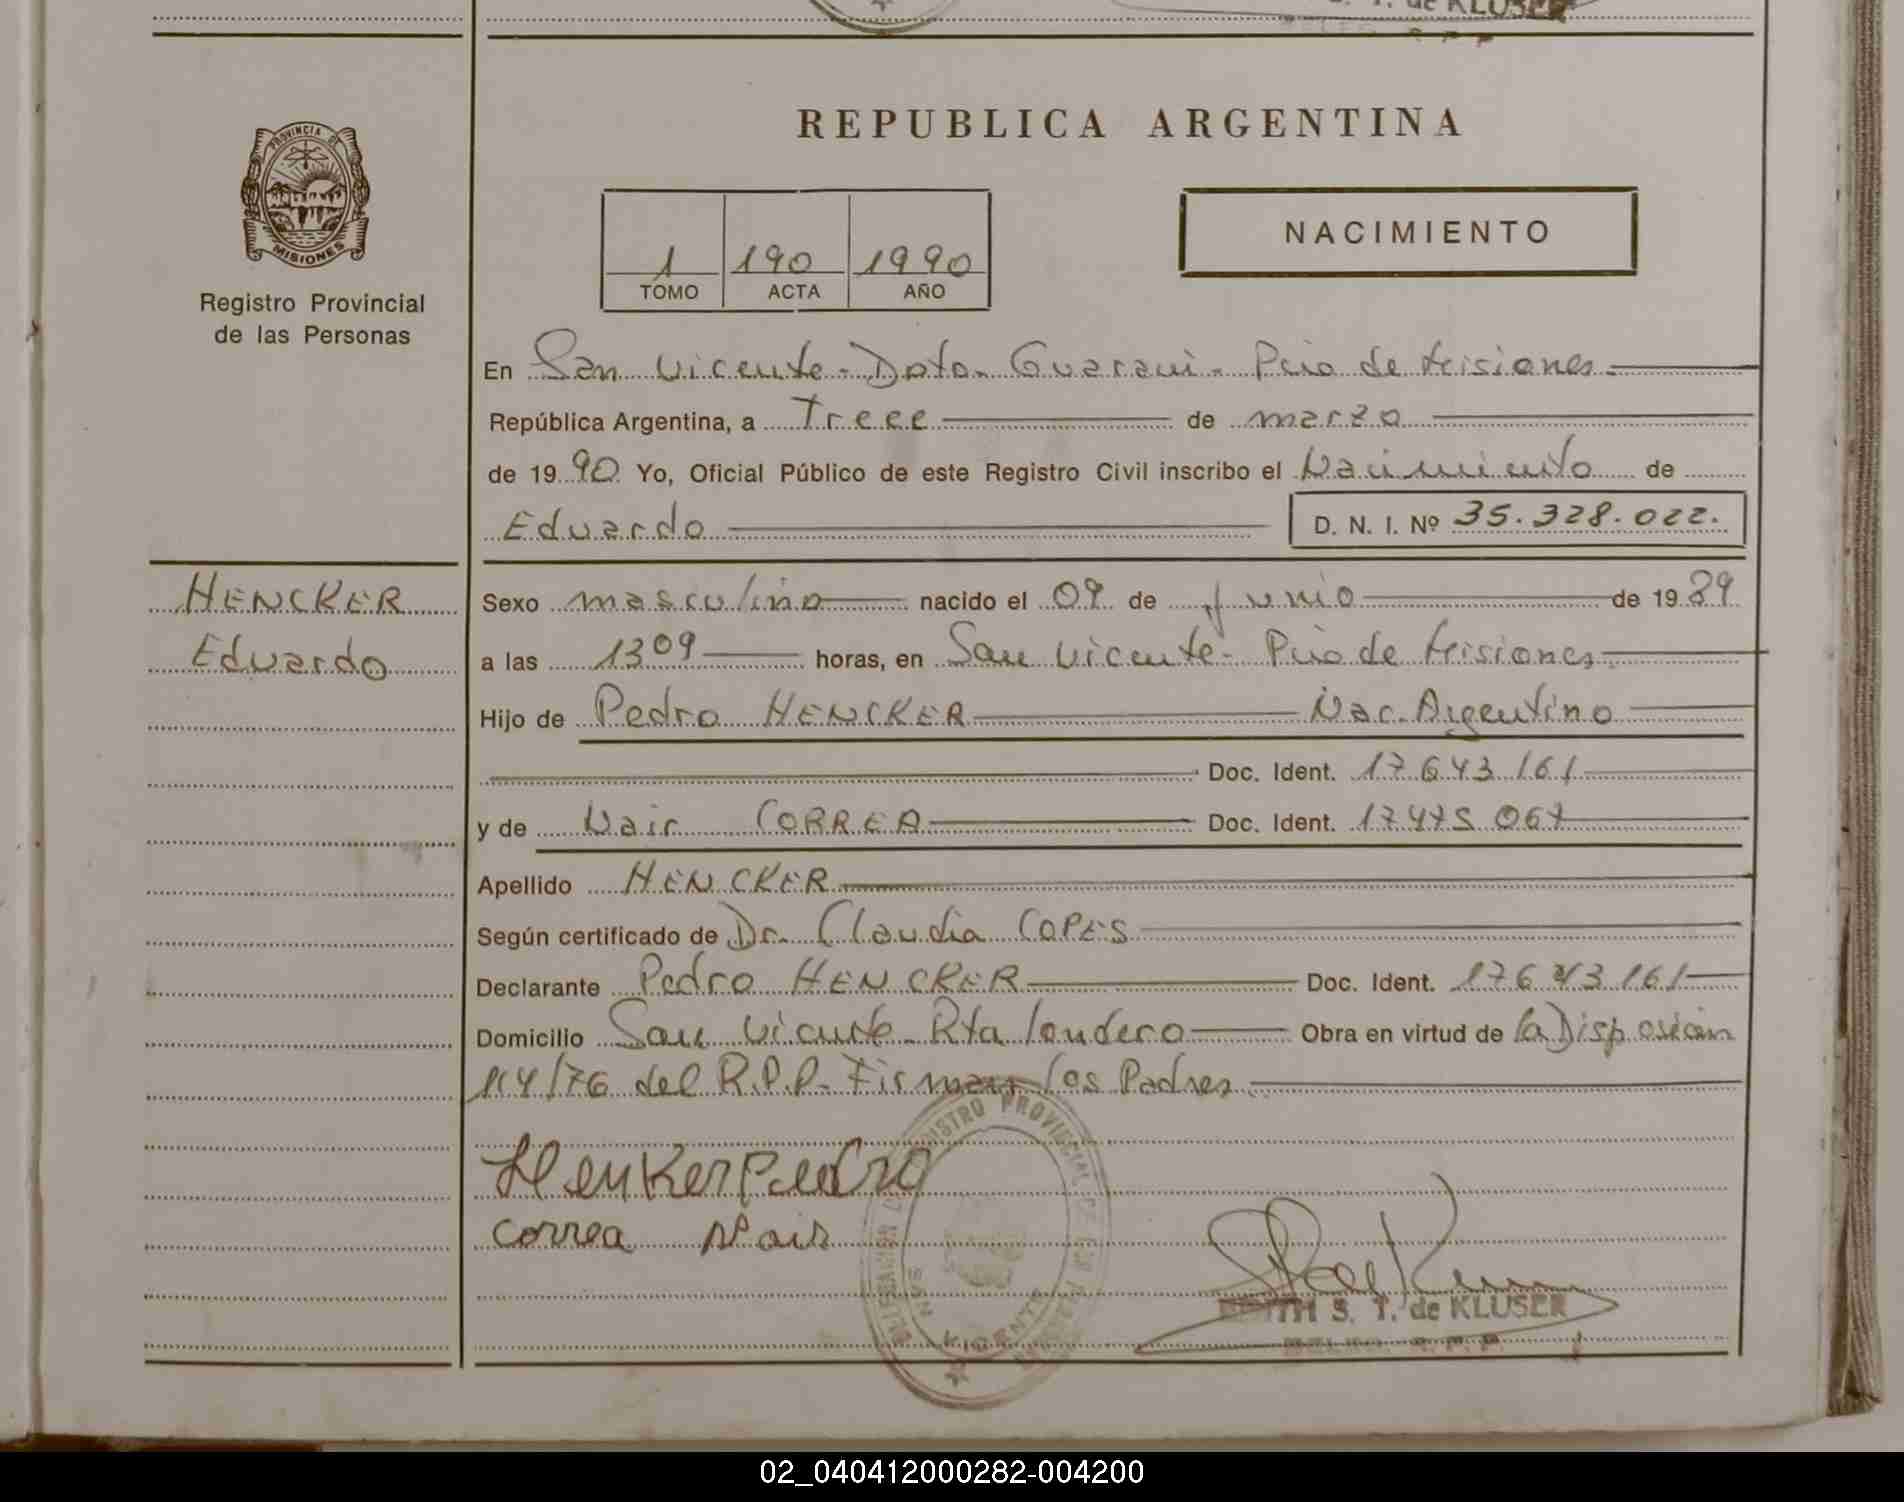 S. T. de KLUSER
PROVINCIA DE
MISIONES
Registro Provincial
de las Personas
REPUBLICA ARGENTINA
1 190 1990
TOMO ACTA AÑO
NACIMIENTO
En San Vicente - Dpto. Guarani - Pcia de Misiones
República Argentina, a Trece de marzo
de 1990 Yo, Oficial Público de este Registro Civil inscribo el Nacimiento de
Eduardo D. N. I. Nº 35.328.022.
HENCKER
Eduardo
Sexo masculino nacido el 09 de junio de 1989
a las 13 09 horas, en San Vicente - Pcia de Misiones
Hijo de Pedro HENCKER Nac. Argentino
Doc. Ident. 17.643.161
y de Nair CORREA Doc. Ident. 17475 067
Apellido HENCKER
Según certificado de Dr. Claudia COPES
Declarante Pedro HENCKER Doc. Ident. 17643161
Domicilio San Vicente - Rta londero Obra en virtud de la Disposición
114/76 del R.P.P. Firman los Padres
Henker Pedro
Correa Nair
REGISTRO PROVINCIAL DE LAS PERSONAS
SAN VICENTE
S. T. de KLUSER
02_040412000282-004200